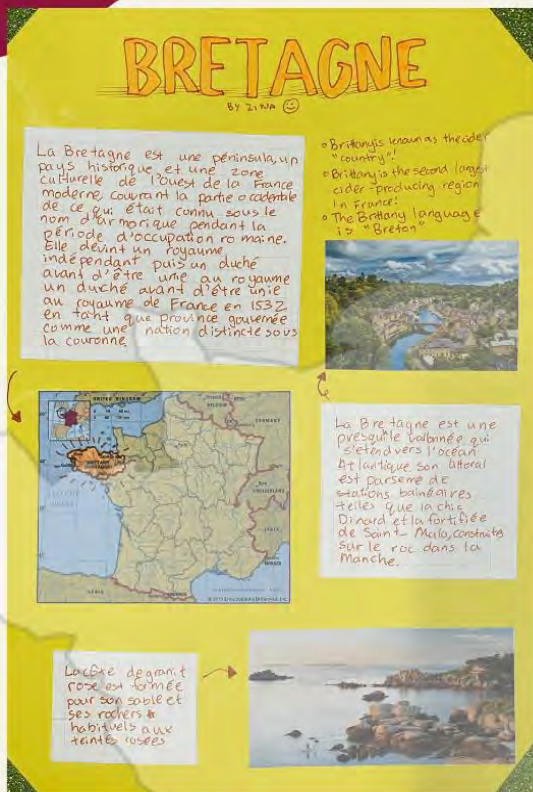 BRETAGNE
BY ZINA
La Bretagne est une péninsula, un
pays historique et une zone
culturelle de l'Ouest de la France
moderne, couvrant la partie occadentile
de ce qui était connu sous le
nom d'armorique pendant la
période d'occupation romaine.
Elle devint un royaume
indépendant puis un duché
avant d'être unie au royaume
un duché avant d'être unie
au royaume de France en 1532
en tant que province gouvernée
comme une nation distincte sous
la couronne
• Brittany is known as the cider
"country"!
• Brittany is the second largest
cider producing region
in France!
• The Brittany language
is "Breton"
UNITED KINGDOM
BELGIUM
GERMANY
SWITZERLAND
ITALY
SPAIN
La Bretagne est une
presqu'île vallonnée qui
s'étend vers l'océan
Atlantique son littoral
est parsemé de
stations balnéaires
telles que la chic
Dinard et la fortifiée
de Saint-Malo, construite
sur le roc dans la
Manche.
La côte de granit
rose est
pour son sable et
ses rochers
habituels aux
teintes rosées